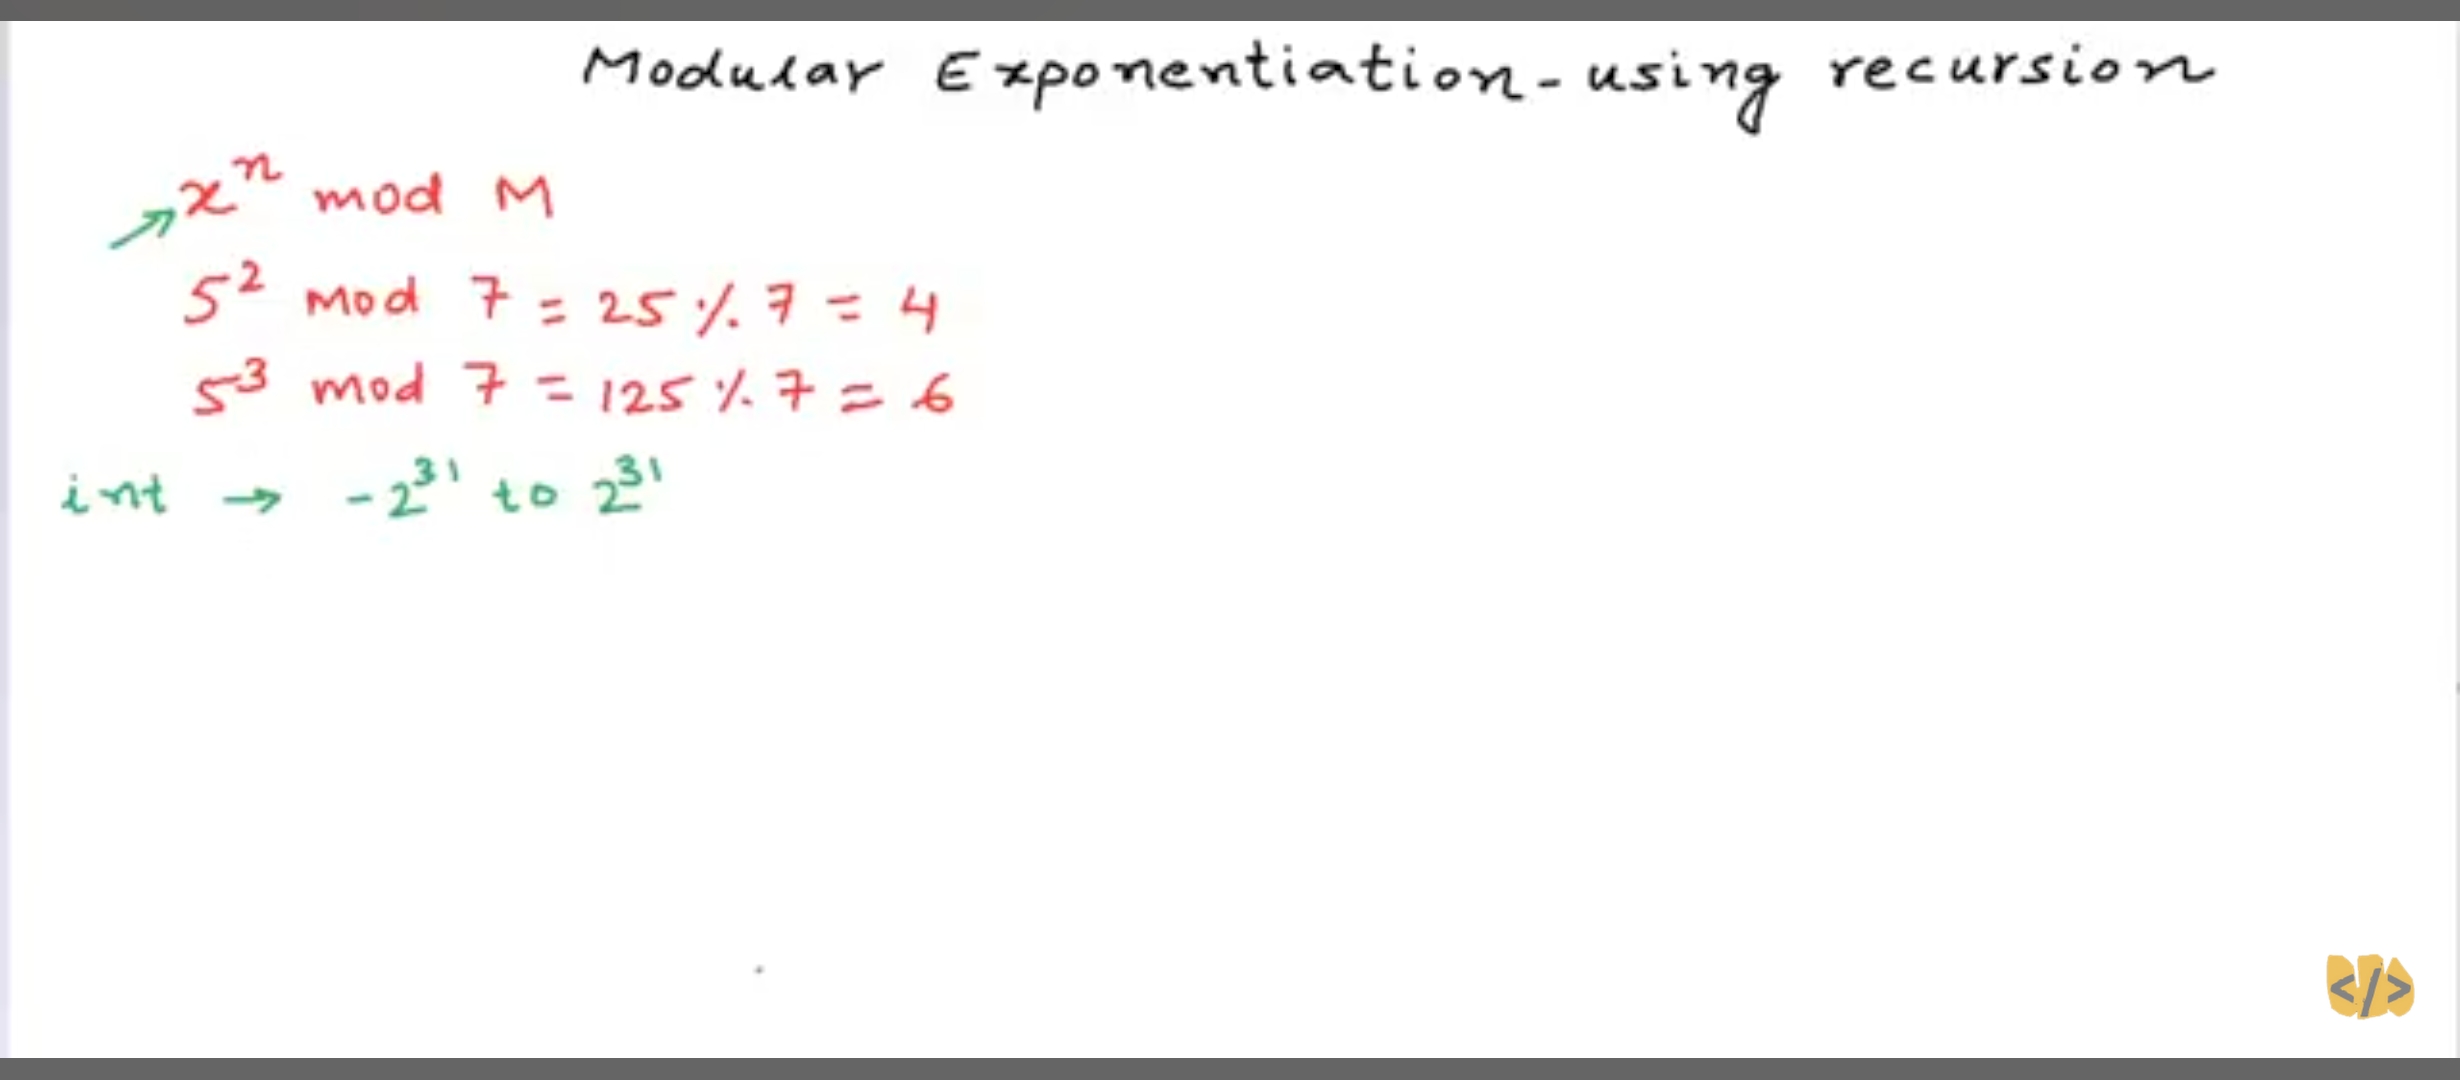 Modular Exponentiation - using recursion
xⁿ mod M
5² mod 7 = 25 % 7 = 4
5³ mod 7 = 125 % 7 = 6
int → -2³¹ to 2³¹
</>